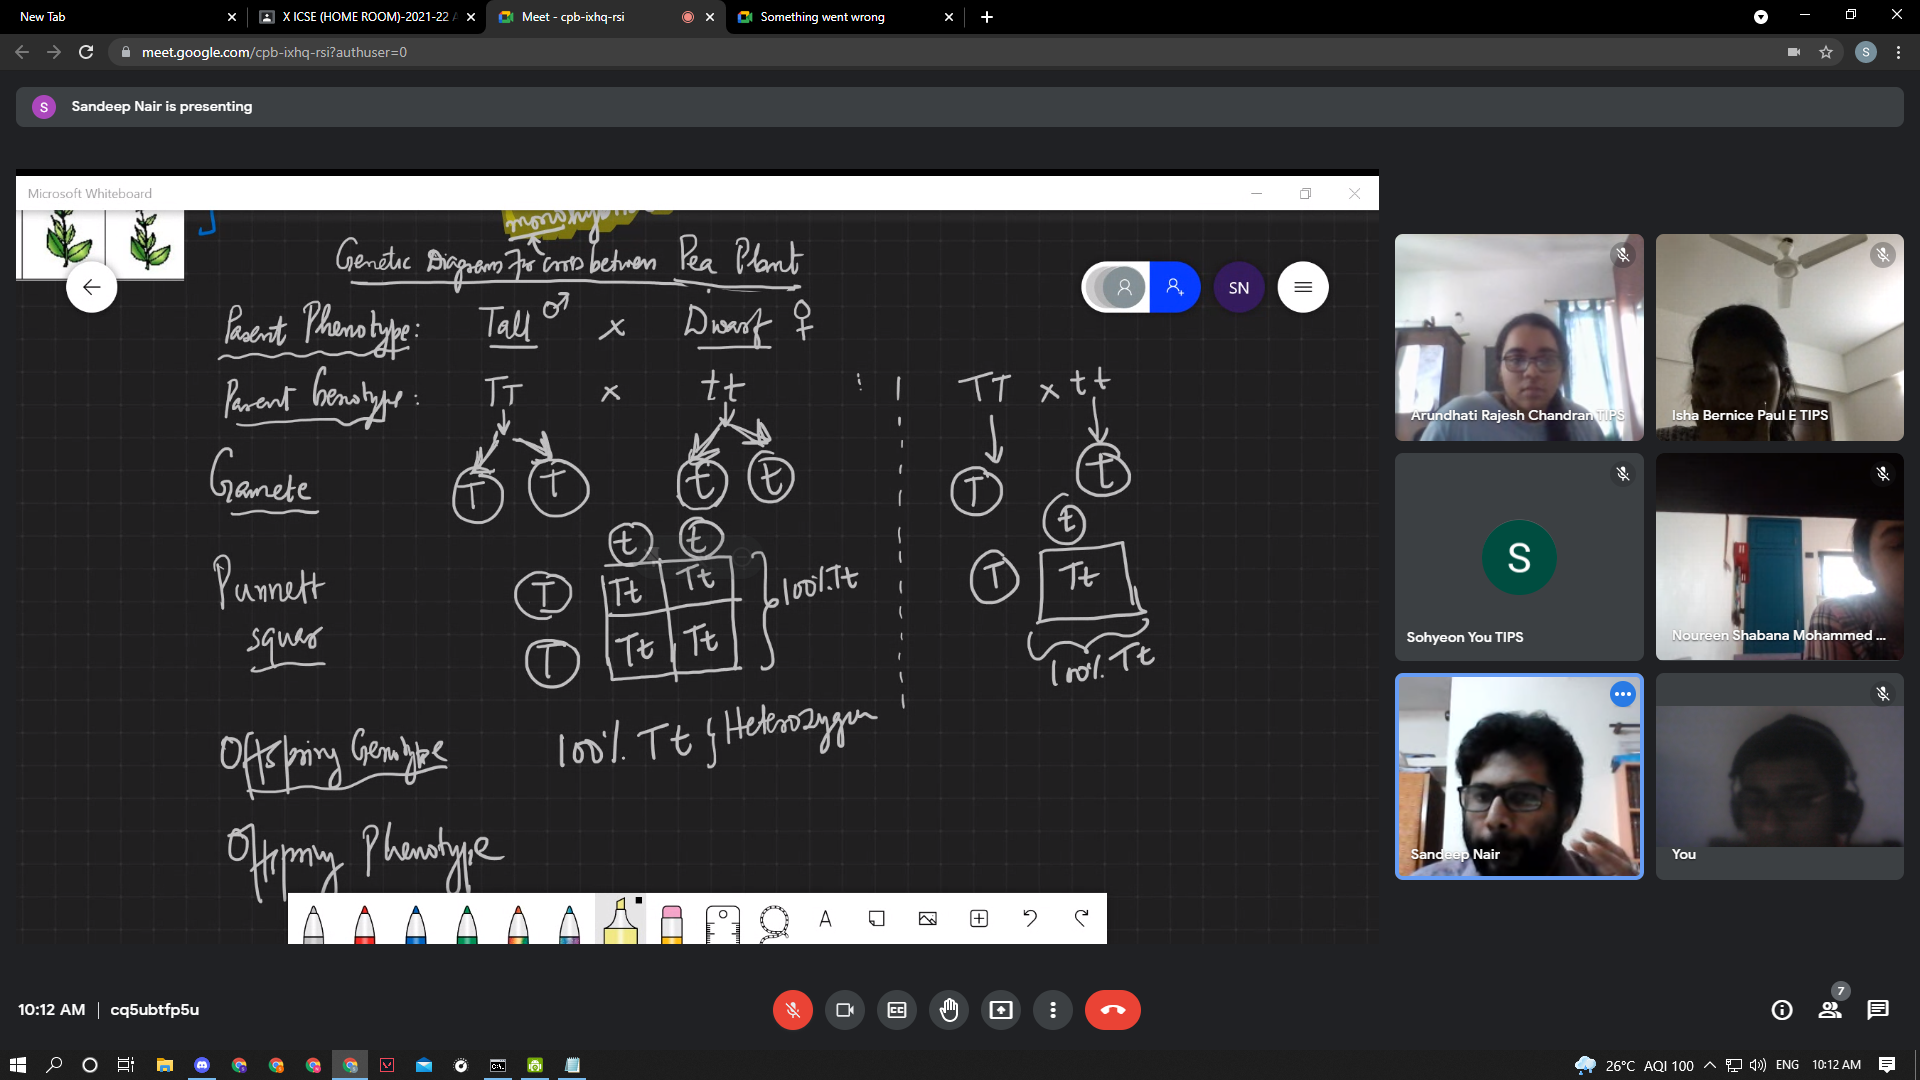 New Tab
X ICSE (HOME ROOM)-2021-22
Meet - cpb-ixhq-rsi
Something went wrong
meet.google.com/cpb-ixhq-rsi?authuser=0
S
S Sandeep Nair is presenting
Microsoft Whiteboard
Genetic Diagrams for cross between Pea Plant
SN
Parent Phenotype: Tall ♂ x Dwarf ♀
Parent Genotype: TT x tt TT x tt
Gamete T T t t T t
t t t
Punnett T Tt Tt 100% Tt T Tt
squar T Tt Tt 100% Tt
Offspring Genotype 100% Tt } Heterozygun
Offspring Phenotype
Arundhati Rajesh Chandran TIPS
Isha Bernice Paul E TIPS
S
Sohyeon You TIPS
Noureen Shabana Mohammed ...
Sandeep Nair
You
A
10:12 AM | cq5ubtfp5u
CC
7
26°C AQI 100 ENG 10:12 AM